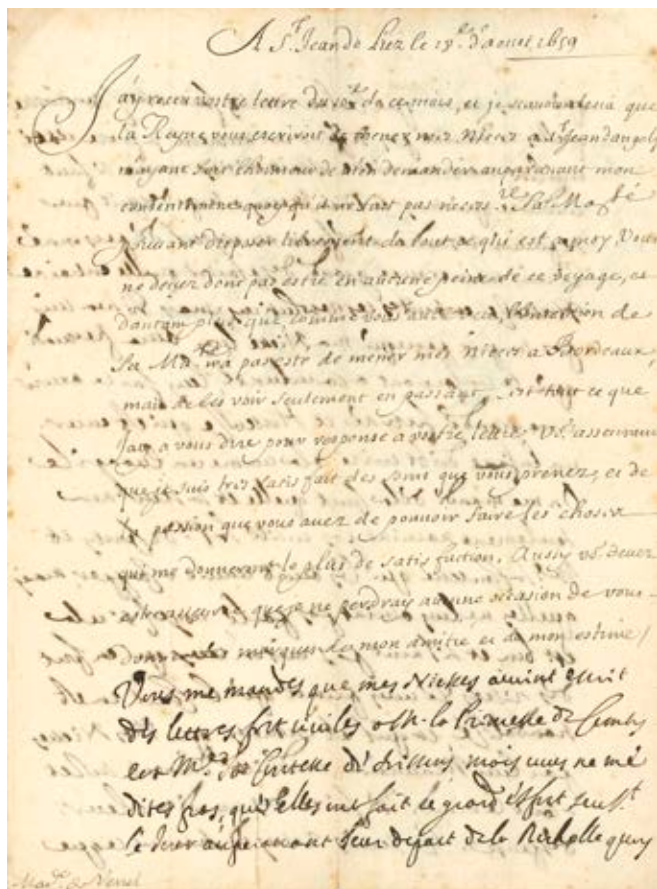 A St Jean de Luz le 18e d'aoust 1659
J'ay receu vostre lettre du 10e de ce mois, et je scavois desia que
la Reyne vous escrivoit de mener mes Nieces a St Jean d'angely
m'ayant fait l'honneur de m'en demander auparavant mon
consentement quoy qu'il ne fust pas necess.re Sa Ma.té
pouvant disposer librement de tout ce qui est a moy Vous
ne devez donc pas estre en aucune peine de ce voyage, et
dautant plus que comme vous l'intention de
sa Ma.té n'a pas esté de mener mes Nieces a Bordeaux,
mais de les voir seulement en passant. c'est tout ce que
J'ay a vous dire pour response a vostre lettre, vs. asseurant
que je suis tres satisfait des soins que vous prenez, et de
la passion que vous avez de pouvoir faire les choses
qui me donneront le plus de satisfaction. Aussy vs. devez
estre asseurée que je ne perdray aucune occasion de vous
donner des marques de mon amitié et de mon estime /
Vous me mandes que mes Nieces avoint escrit
des lettres fort civiles a la Princesse de
et a Mad.e la Contesse de mais vous ne me
dites pas, qu'Elles ont fait le grand effort
le leur depart de la Rochelle quoy
Mad.e de Venel